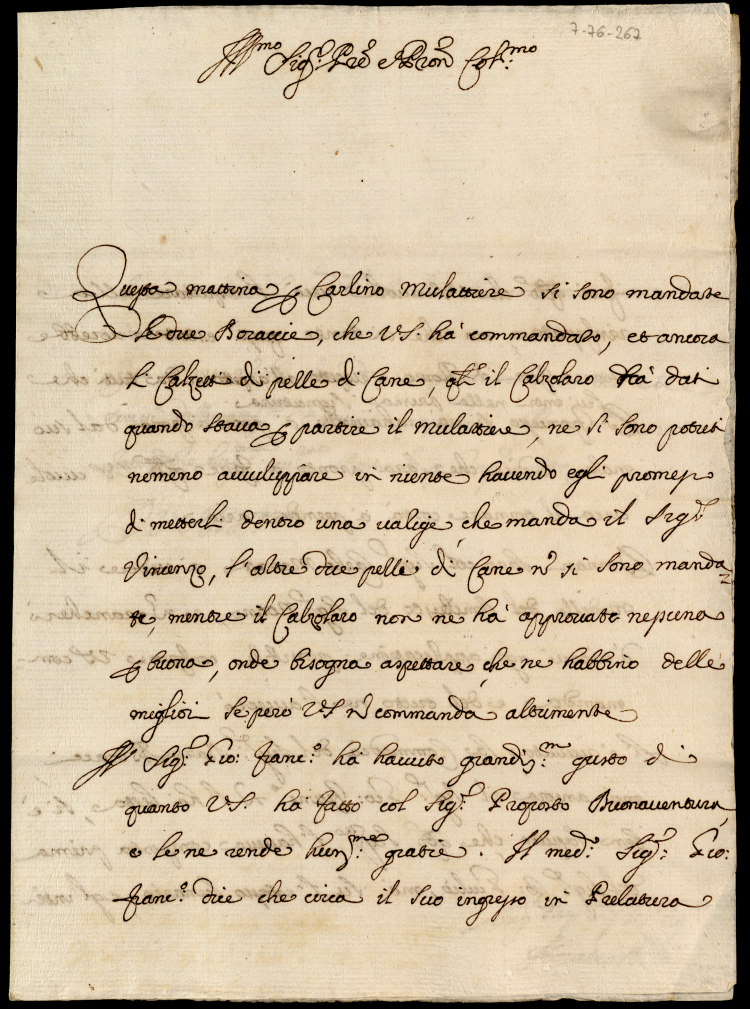 7-76-267
Ill.mo Sig.r Pre e Pron Col.mo
Questa mattina p Carlino Mulattiere si sono mandate
le due Boraccie, che VS. ha commandato, et ancora
li Calzetti di pelle di Cane, q.li il Calzolaro ha dati
quando stava p partire il Mulattiere, ne si sono potuti
nemeno avviluppare in niente havendo egli promesso
di metterli dentro una valige, che manda il Sig.r
Vincenzo, l'altre due pelli di Cane n si sono manda
te, mentre il Calzolaro non ne ha approvate nessuna
p buona, onde bisogna aspettare, che ne habbino delle
migliori se però VS n commanda altrimente
Il Sig.r Gio: Franc.o ha havuto grandiss.m gusto di
quanto VS. ha fatto col Sig.r Proposto Buonaventura,
e le ne rende hum.me gratie. Il med.o Sig.r Gio:
Franc.o dice che circa il suo ingresso in Prelatura